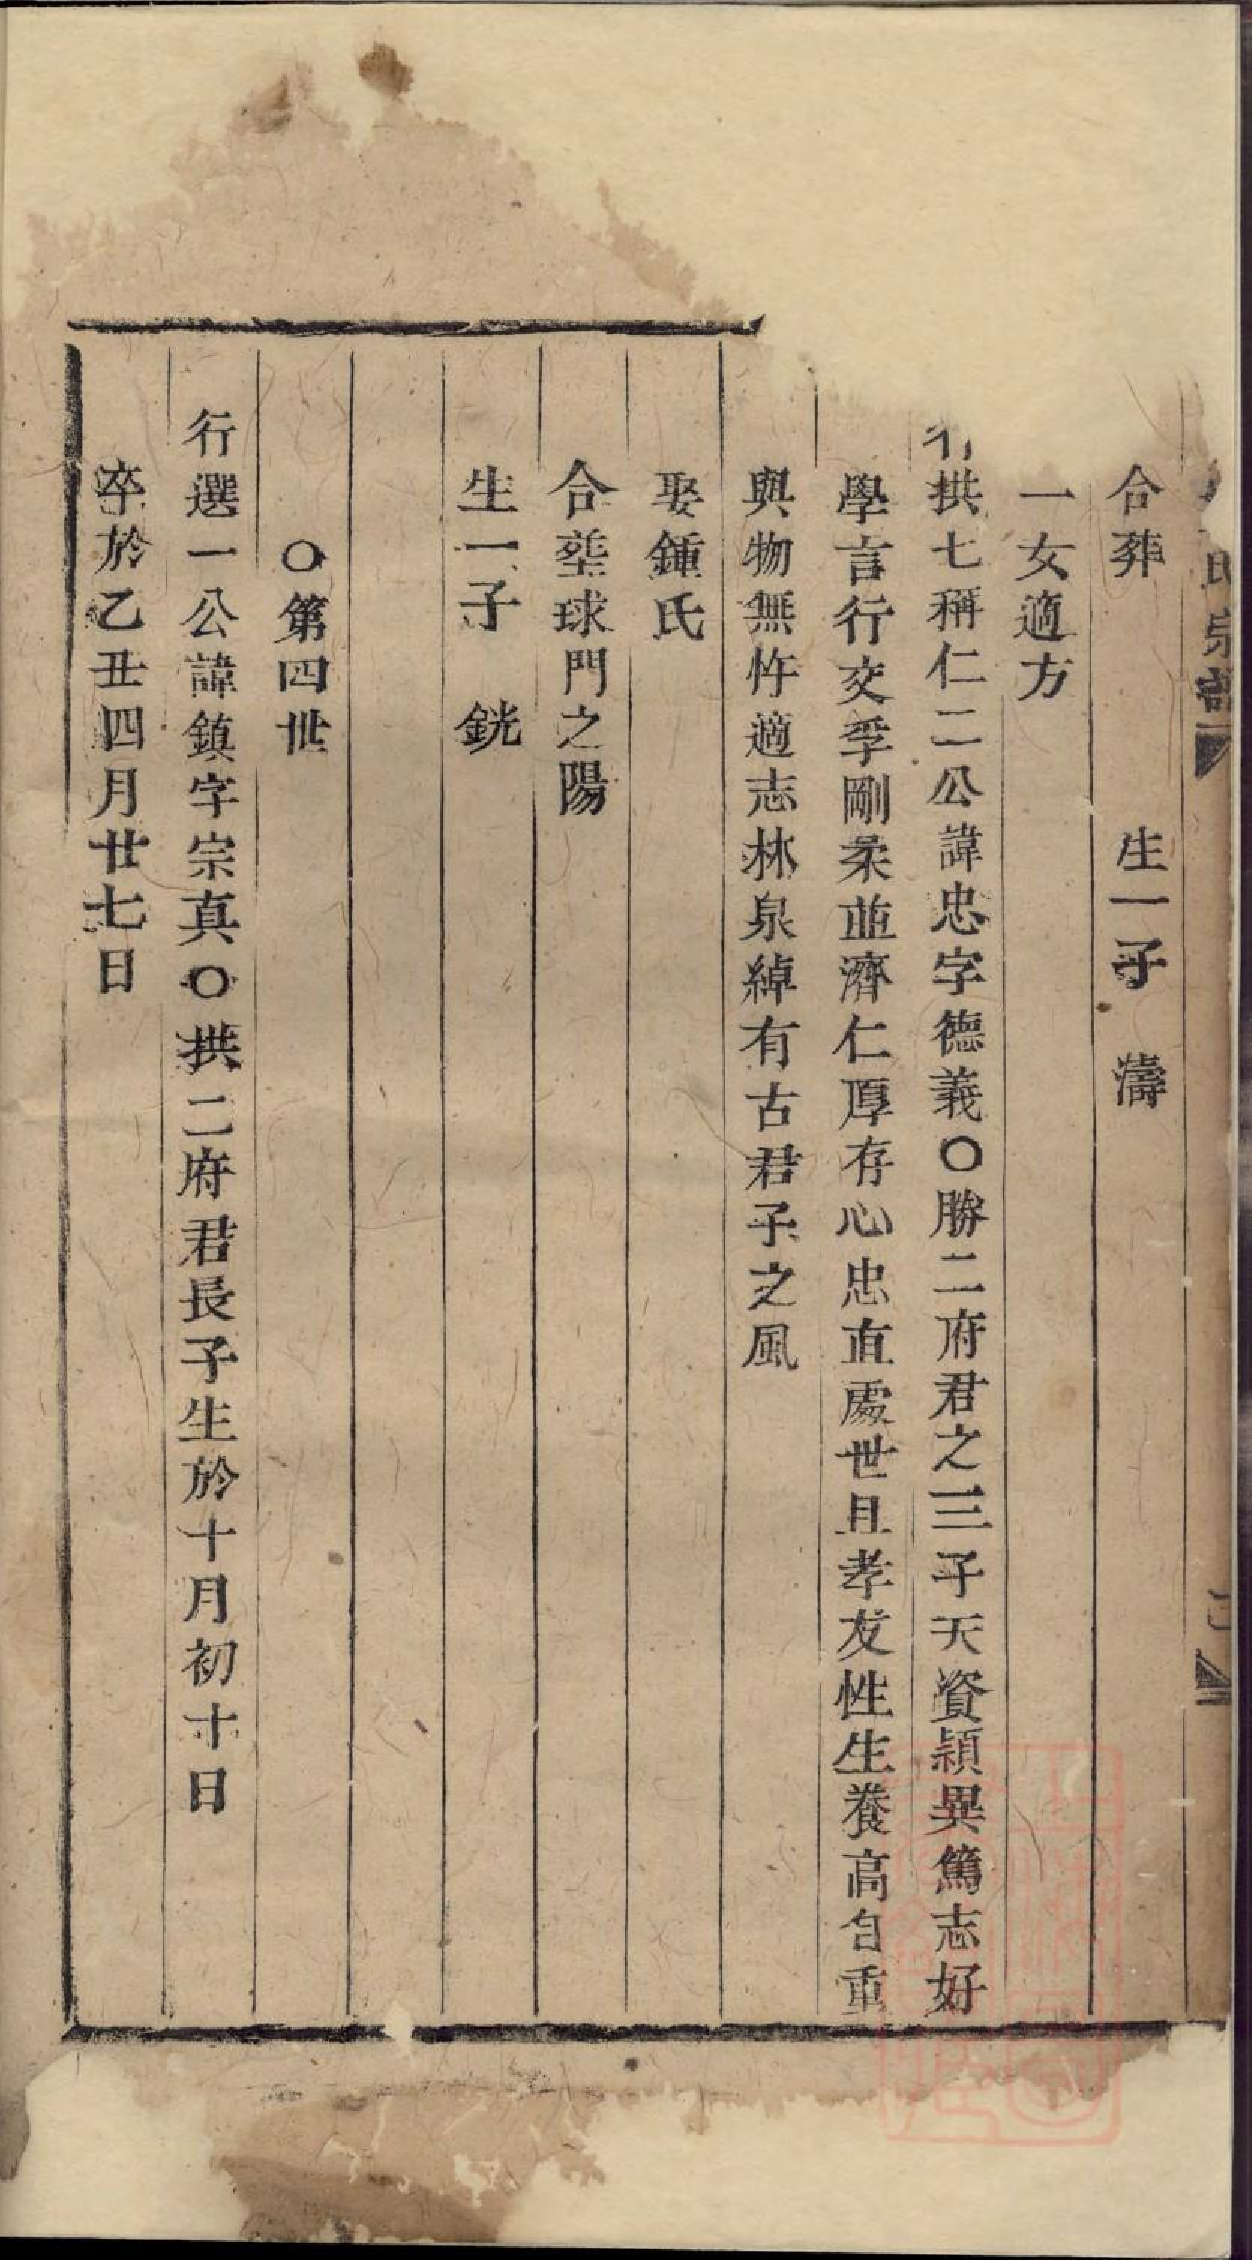 氏宗譜
合葬 生一子 濤
一女適方
行拱七稱仁二公諱忠字德義○勝二府君之三子天資穎異篤志好
學言行交孚剛柔並濟仁厚存心忠直處世且孝友性生養高自重
與物無忤適志林泉綽有古君子之風
娶鍾氏
合塟球門之陽
生一子 銑
○第四世
行選一公諱鎮字宗真○拱二府君長子生於十月初十日
卒於乙丑四月廿七日